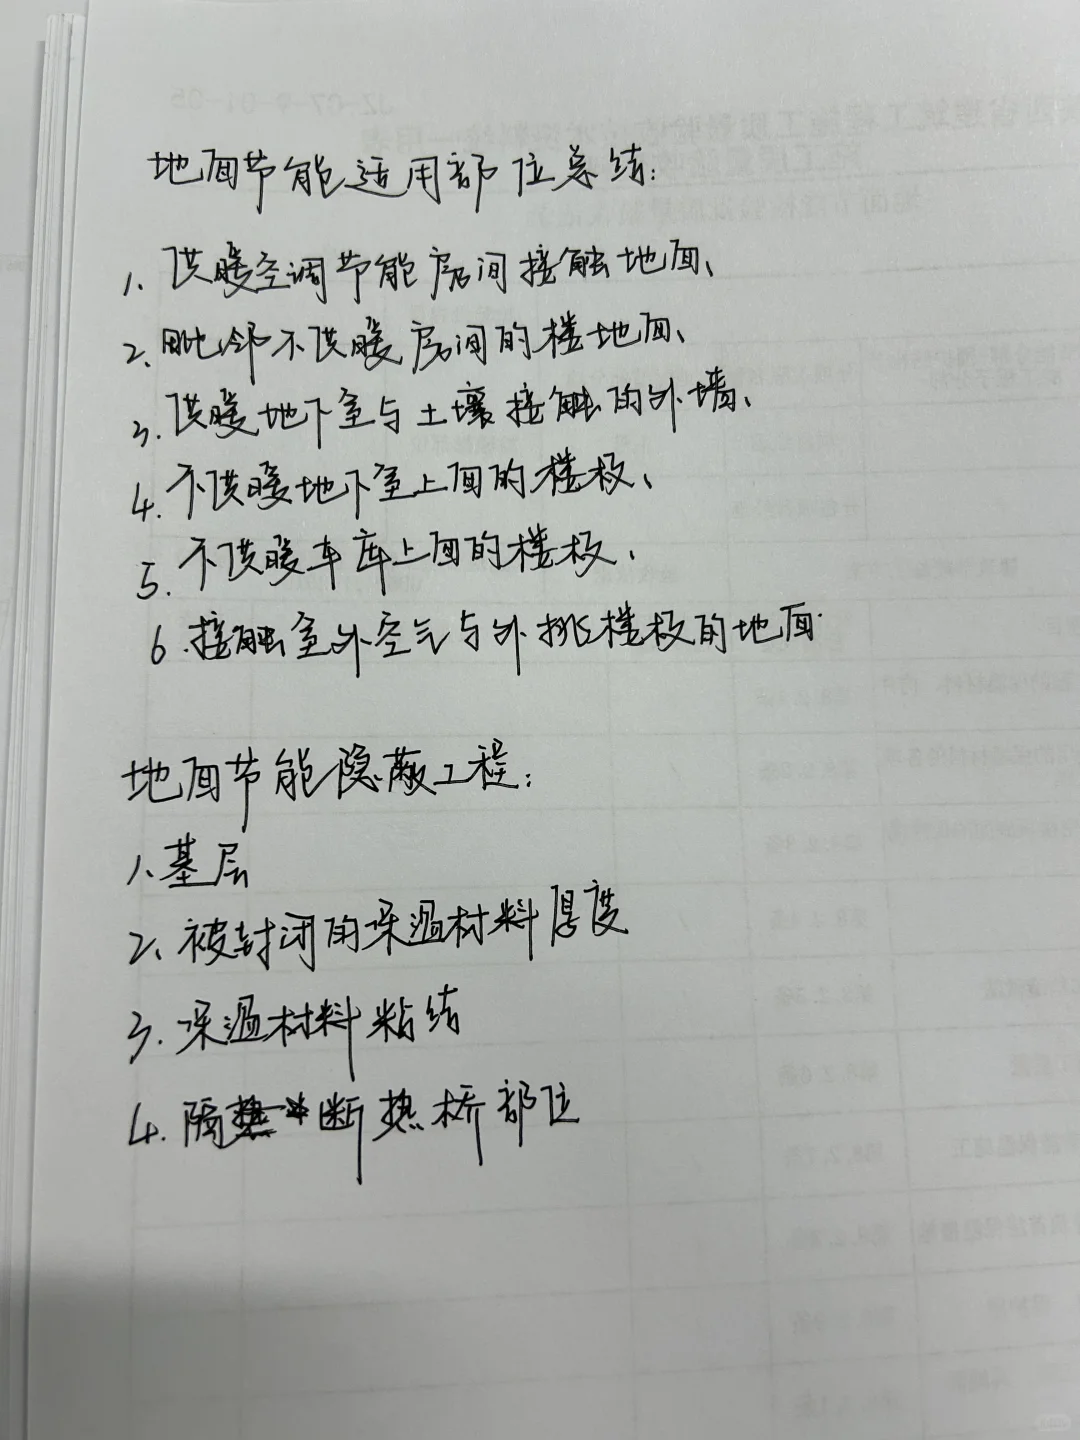 地面节能适用部位总结:
1、供暖空调节能房间接触地面、
2、毗邻不供暖房间的楼地面、
3.供暖地下室与土壤接触的外墙、
4.不供暖地下室上面的楼板、
5.不供暖车库上面的楼板、
6.接触室外空气与外挑楼板的地面.
地面节能隐蔽工程:
1、基层
2、被封闭的保温材料厚度
3.保温材料粘结
4.隔断热桥部位